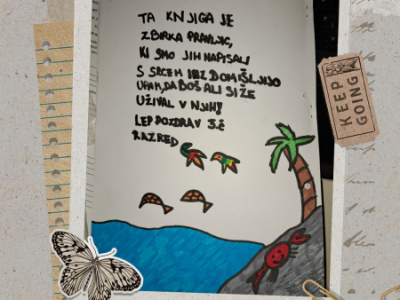 TA KNJIGA JE
ZBIRKA PRAVLJIC,
KI SMO JIH NAPISALI
S SRCEM IN Z DOMIŠLJIJO
UPAM, DA BOŠ ALI SI ŽE
UŽIVAL V NJIH!
LEP POZDRAV 5.E
RAZRED
KEEP
GOING